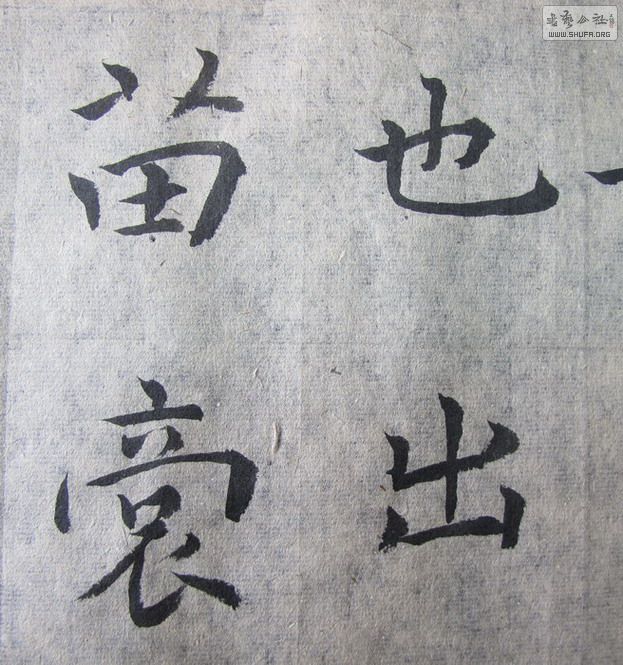 也出
苗裔
书艺公社
WWW.SHUFA.ORG